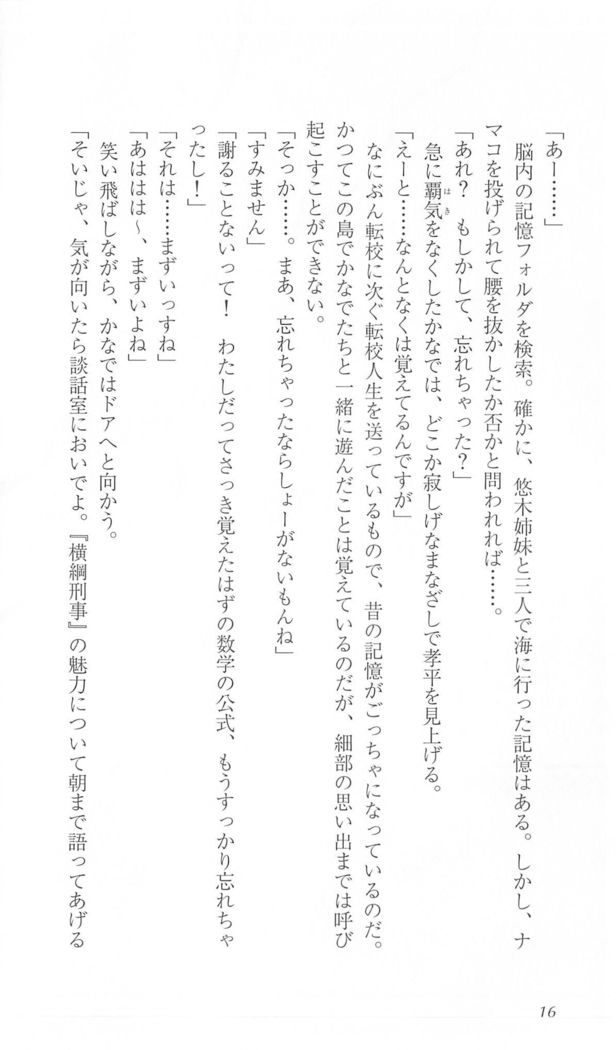 「あー……」
　脳内の記憶フォルダを検索。確かに、悠木姉妹と三人で海に行った記憶はある。しかし、ナ
マコを投げられて腰を抜かしたか否かと問われれば……。
「あれ？　もしかして、忘れちゃった？」
　急に覇気をなくしたかなでは、どこか寂しげなまなざしで孝平を見上げる。
「えーと……なんとなくは覚えてるんですが」
　なにぶん転校に次ぐ転校人生を送っているもので、昔の記憶がごっちゃになっているのだ。
かつてこの島でかなでたちと一緒に遊んだことは覚えているのだが、細部の思い出までは呼び
起こすことができない。
「そっか……。まあ、忘れちゃったならしょーがないもんね」
「すみません」
「謝ることないって！　わたしだってさっき覚えたはずの数学の公式、もうすっかり忘れちゃ
ったし！」
「それは……まずいっすね」
「あははは～、まずいよね」
　笑い飛ばしながら、かなではドアへと向かう。
「そいじゃ、気が向いたら談話室においでよ。『横綱刑事』の魅力について朝まで語ってあげる
16